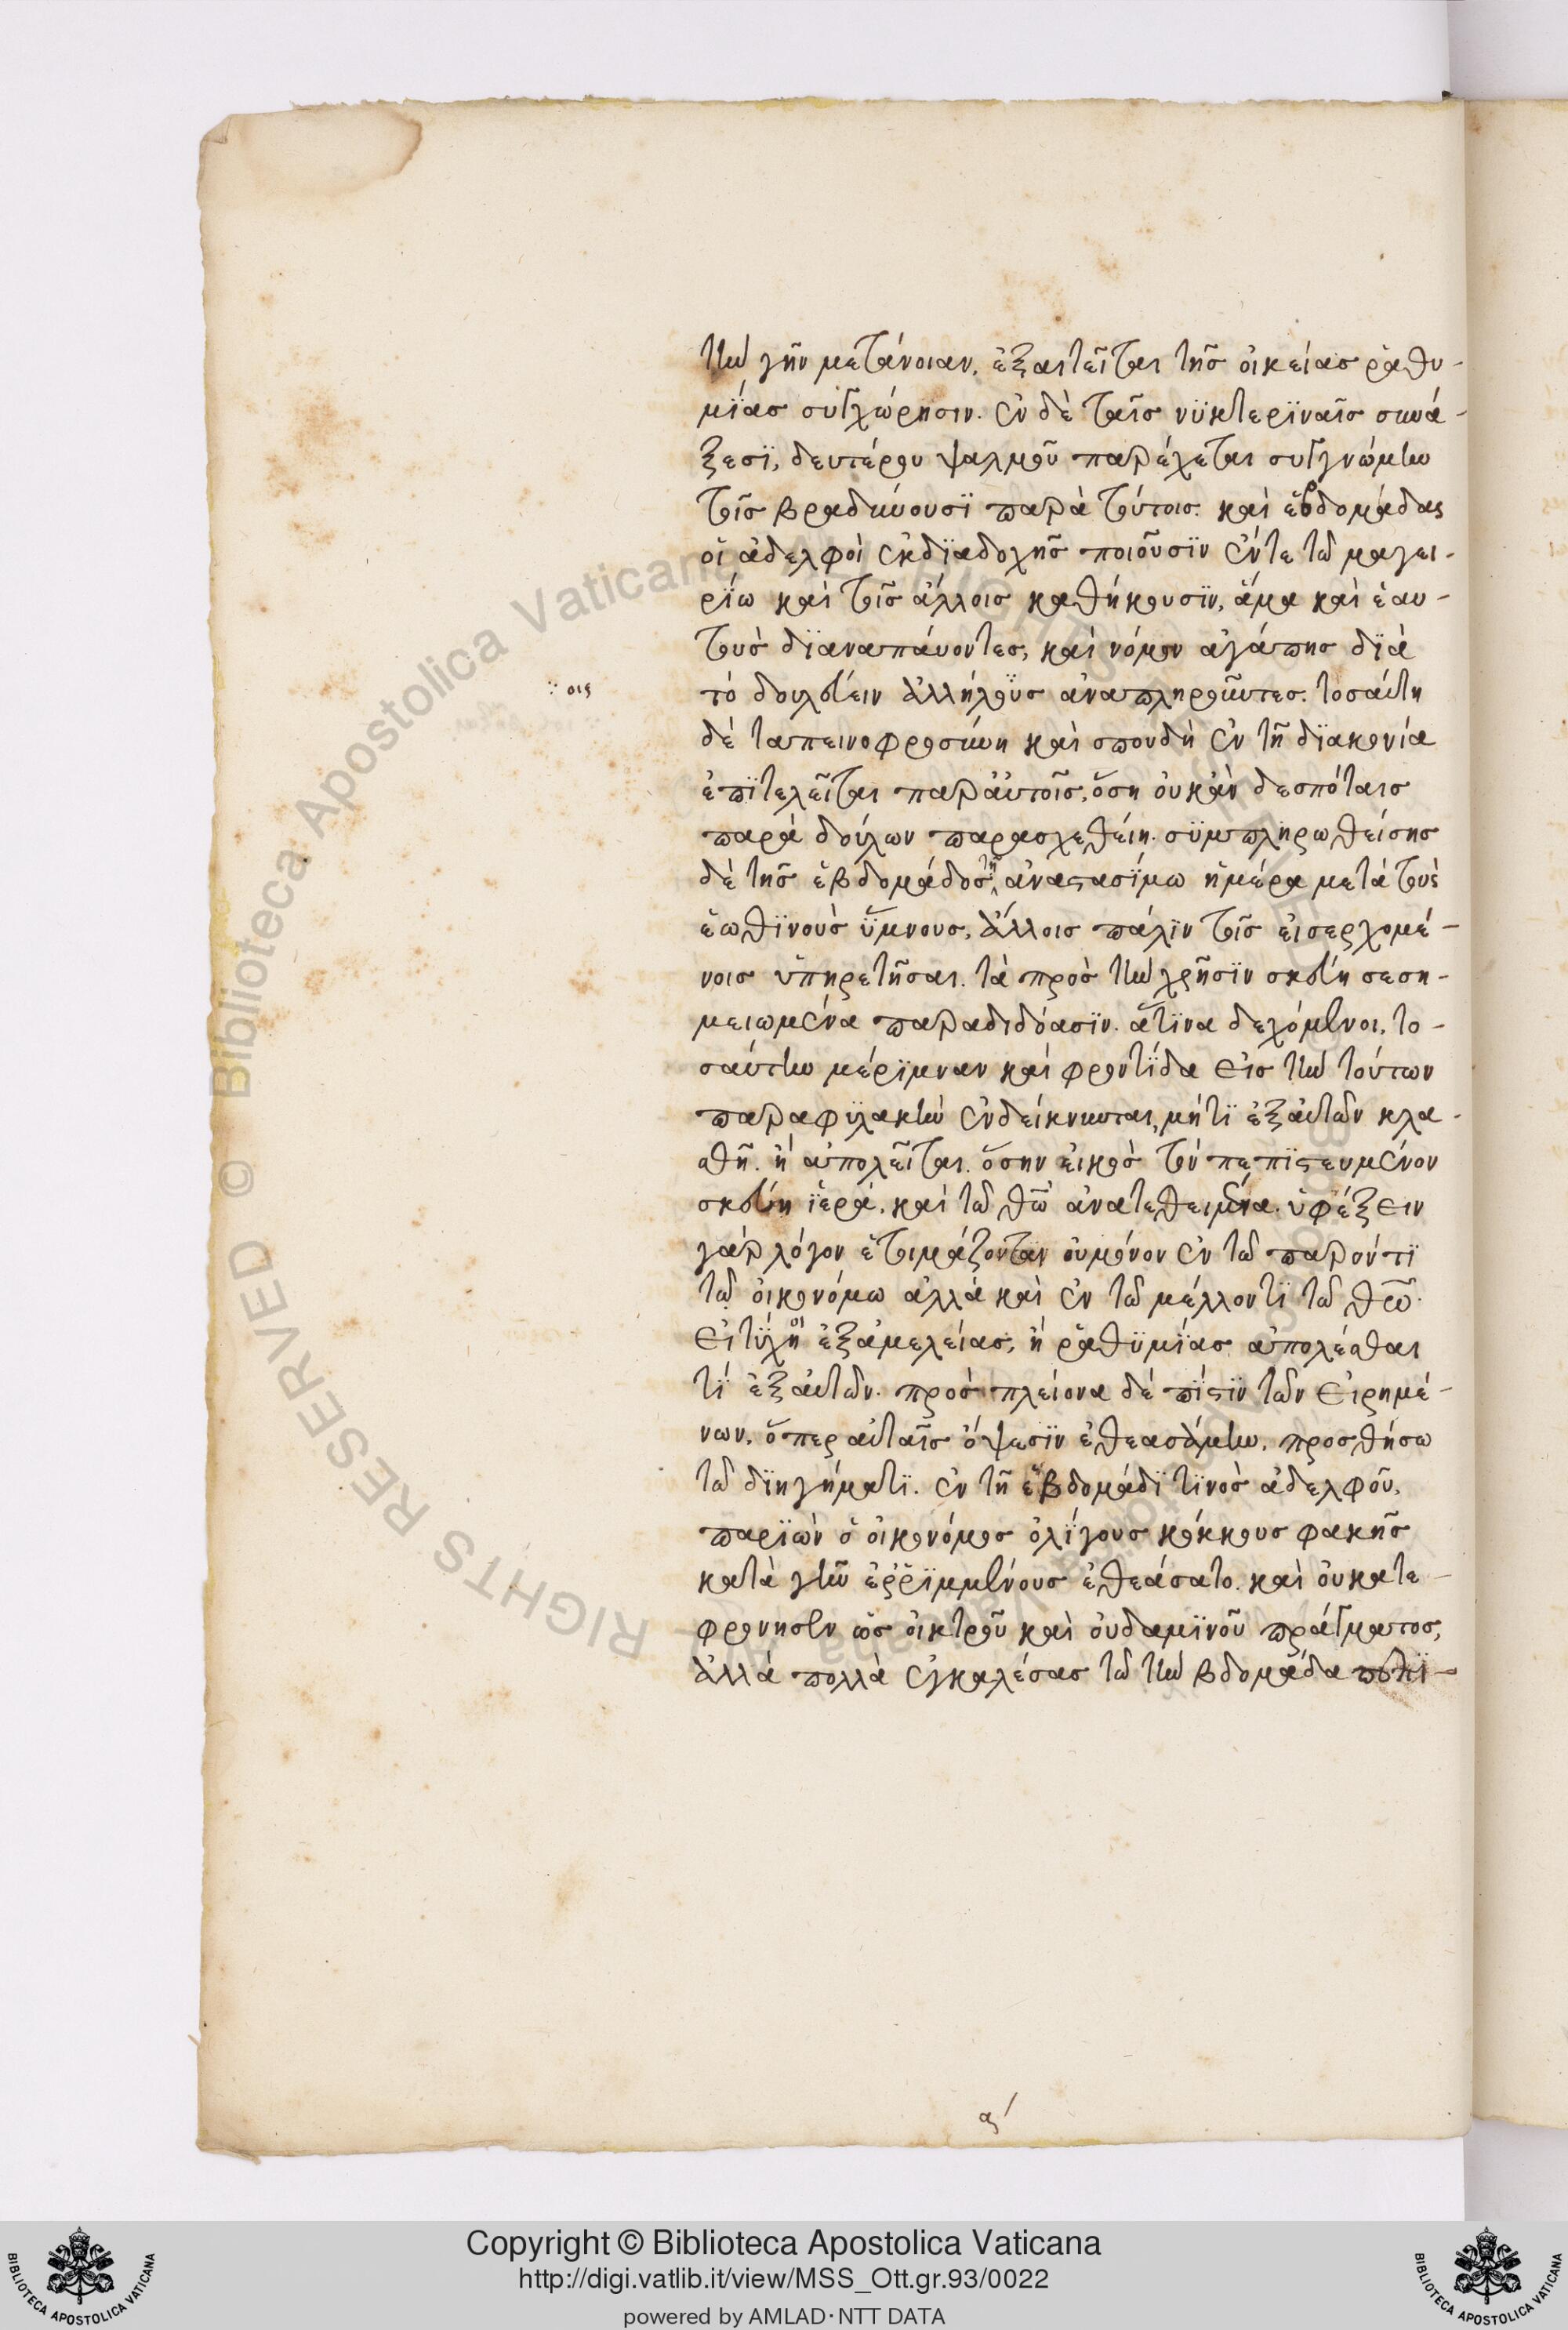 τὴν γῆν μετάνοιαν, ἐξαιτεῖται τῆς οἰκείας ῥαθυ-
μΐας συγχώρησιν. ἐν δὲ ταῖς νϋκτερϊναῖς συνά-
ξεσϊ, δευτέρου ψαλμοῦ παρέχεται συγγνώμην
τοῖς βραδύνουσϊ παρὰ τούτοις. καὶ ἑβδομάδας
οἱ ἀδελφοὶ ἐκδϊαδοχῆς ποιοῦσϊν ἔν τε τῶ μαγει-
ρίω καὶ τοῖς ἄλλοις καθήκουσϊν, ἅμα καὶ ἑαυ-
τοὺς δϊαναπάυοντες, καὶ νόμον ἀγάπης δϊὰ
τὸ δουλεύειν ἀλλήλοϋς ἀναπληροῦντες. τοσαύτη
∵ οις
δὲ ταπεινοφροσύνη καὶ σπουδὴ ἐν τῆ δϊακονία
ἐπϊτελεῖται παρἀυτοῖς, ὅση οὐκἂν δεσπόταις
παρὰ δούλων παρασχεθείη. σϋμπληρωθείσης
δὲ τῆς ἑβδομάδος, τῆ ἀναστασΐμω ἡμέρα μετὰ τοὺς
ἑωθϊνοὺς ὕμνους, ἄλλοις πάλϊν τοῖς εἰσερχομέ-
νοις ὑπηρετῆσαι. τὰ πρὸς τὴν χρῆσϊν σκεύη σεση-
μειωμένα παραδιδόασϊν. ἅτϊνα δεχόμενοι, το-
σαύτην μέρϊμναν καὶ φροντΐδα εἰς τὴν τούτων
παραφϋλακὴν ἐνδείκνυται, μήτϊ ἐξαὐτῶν κλα-
σθῆ. ἢ ἀπολεῖται. ὅσην εἰκὸς τὸν πεπϊστευμένον
σκεύη ϊερὰ, καὶ τῶ θῶ ἀνατεθειμένα. ὑφέξειν
γὰρ λόγον ἑτοιμάζονται οὐμόνον ἐν τῶ παρόντϊ
τῶ οἰκονόμω ἀλλὰ καὶ ἐν τῶ μέλλοντϊ τῶ θῶ.
εἰτύχη οἱ ἐξἀμελείας, ἢ ῥαθϋμΐας ἀπολέσθαι
τΐ ἐξαὐτῶν. πρὸς πλείονα δὲ πΐστϊν τῶν εἰρημέ-
νων, ὅπερ αὐταῖς ὄψεσϊν ἐθεασάμην, προσθήσω
τῶ δϊηγήματϊ. ἐν τῆ ἑβδομάδϊ τϊνὸς ἀδελφοῦ,
παρϊὼν ὁ οἰκονόμος ὀλΐγους κόκκους φακῆς
κατὰ γῆν ἐρῥϊμμένους ἐθεάσατο. καὶ οὐκατε-
φρόνησεν ὡς οἰκτροῦ καὶ οὐδαμϊνοῦ πράγματος,
ἀλλὰ πολλὰ ἐγκαλέσας τῶ τὴν βδομάδα
α΄
Biblioteca Apostolica Vaticana
RIGHTS RESERVED ©
Copyright © Biblioteca Apostolica Vaticana
http://digi.vatlib.it/view/MSS_Ott.gr.93/0022
powered by AMLAD·NTT DATA
BIBLIOTECA APOSTOLICA VATICANA
BIBLIOTECA APOSTOLICA VATICANA